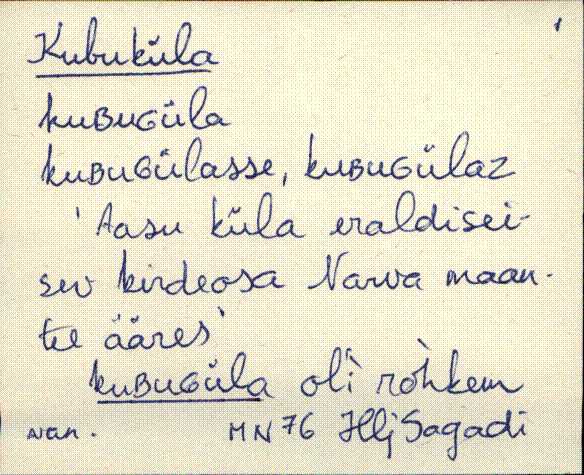 Kubuküla
kuBuGüla
kuBuGülasse, kuBuGülaz
'Aasu küla eraldisei-
sev kirdeosa Narva maan-
tee ääres'
kuBuGüla oli rohkem
van. MN 76 Hlj Sagadi